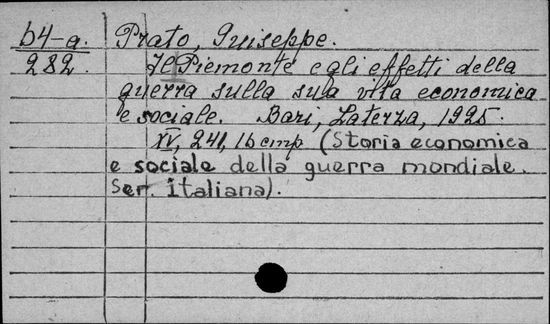 b4-a. Prato, Guiseppe.
282. Il Piemonte e gli effetti della
guerra sulla sua vita economica
e sociale. Bari, Laterza, 1925.
XV, 241, 16 cmp (Storia economica
e sociale della guerra mondiale.
Ser. italiana).